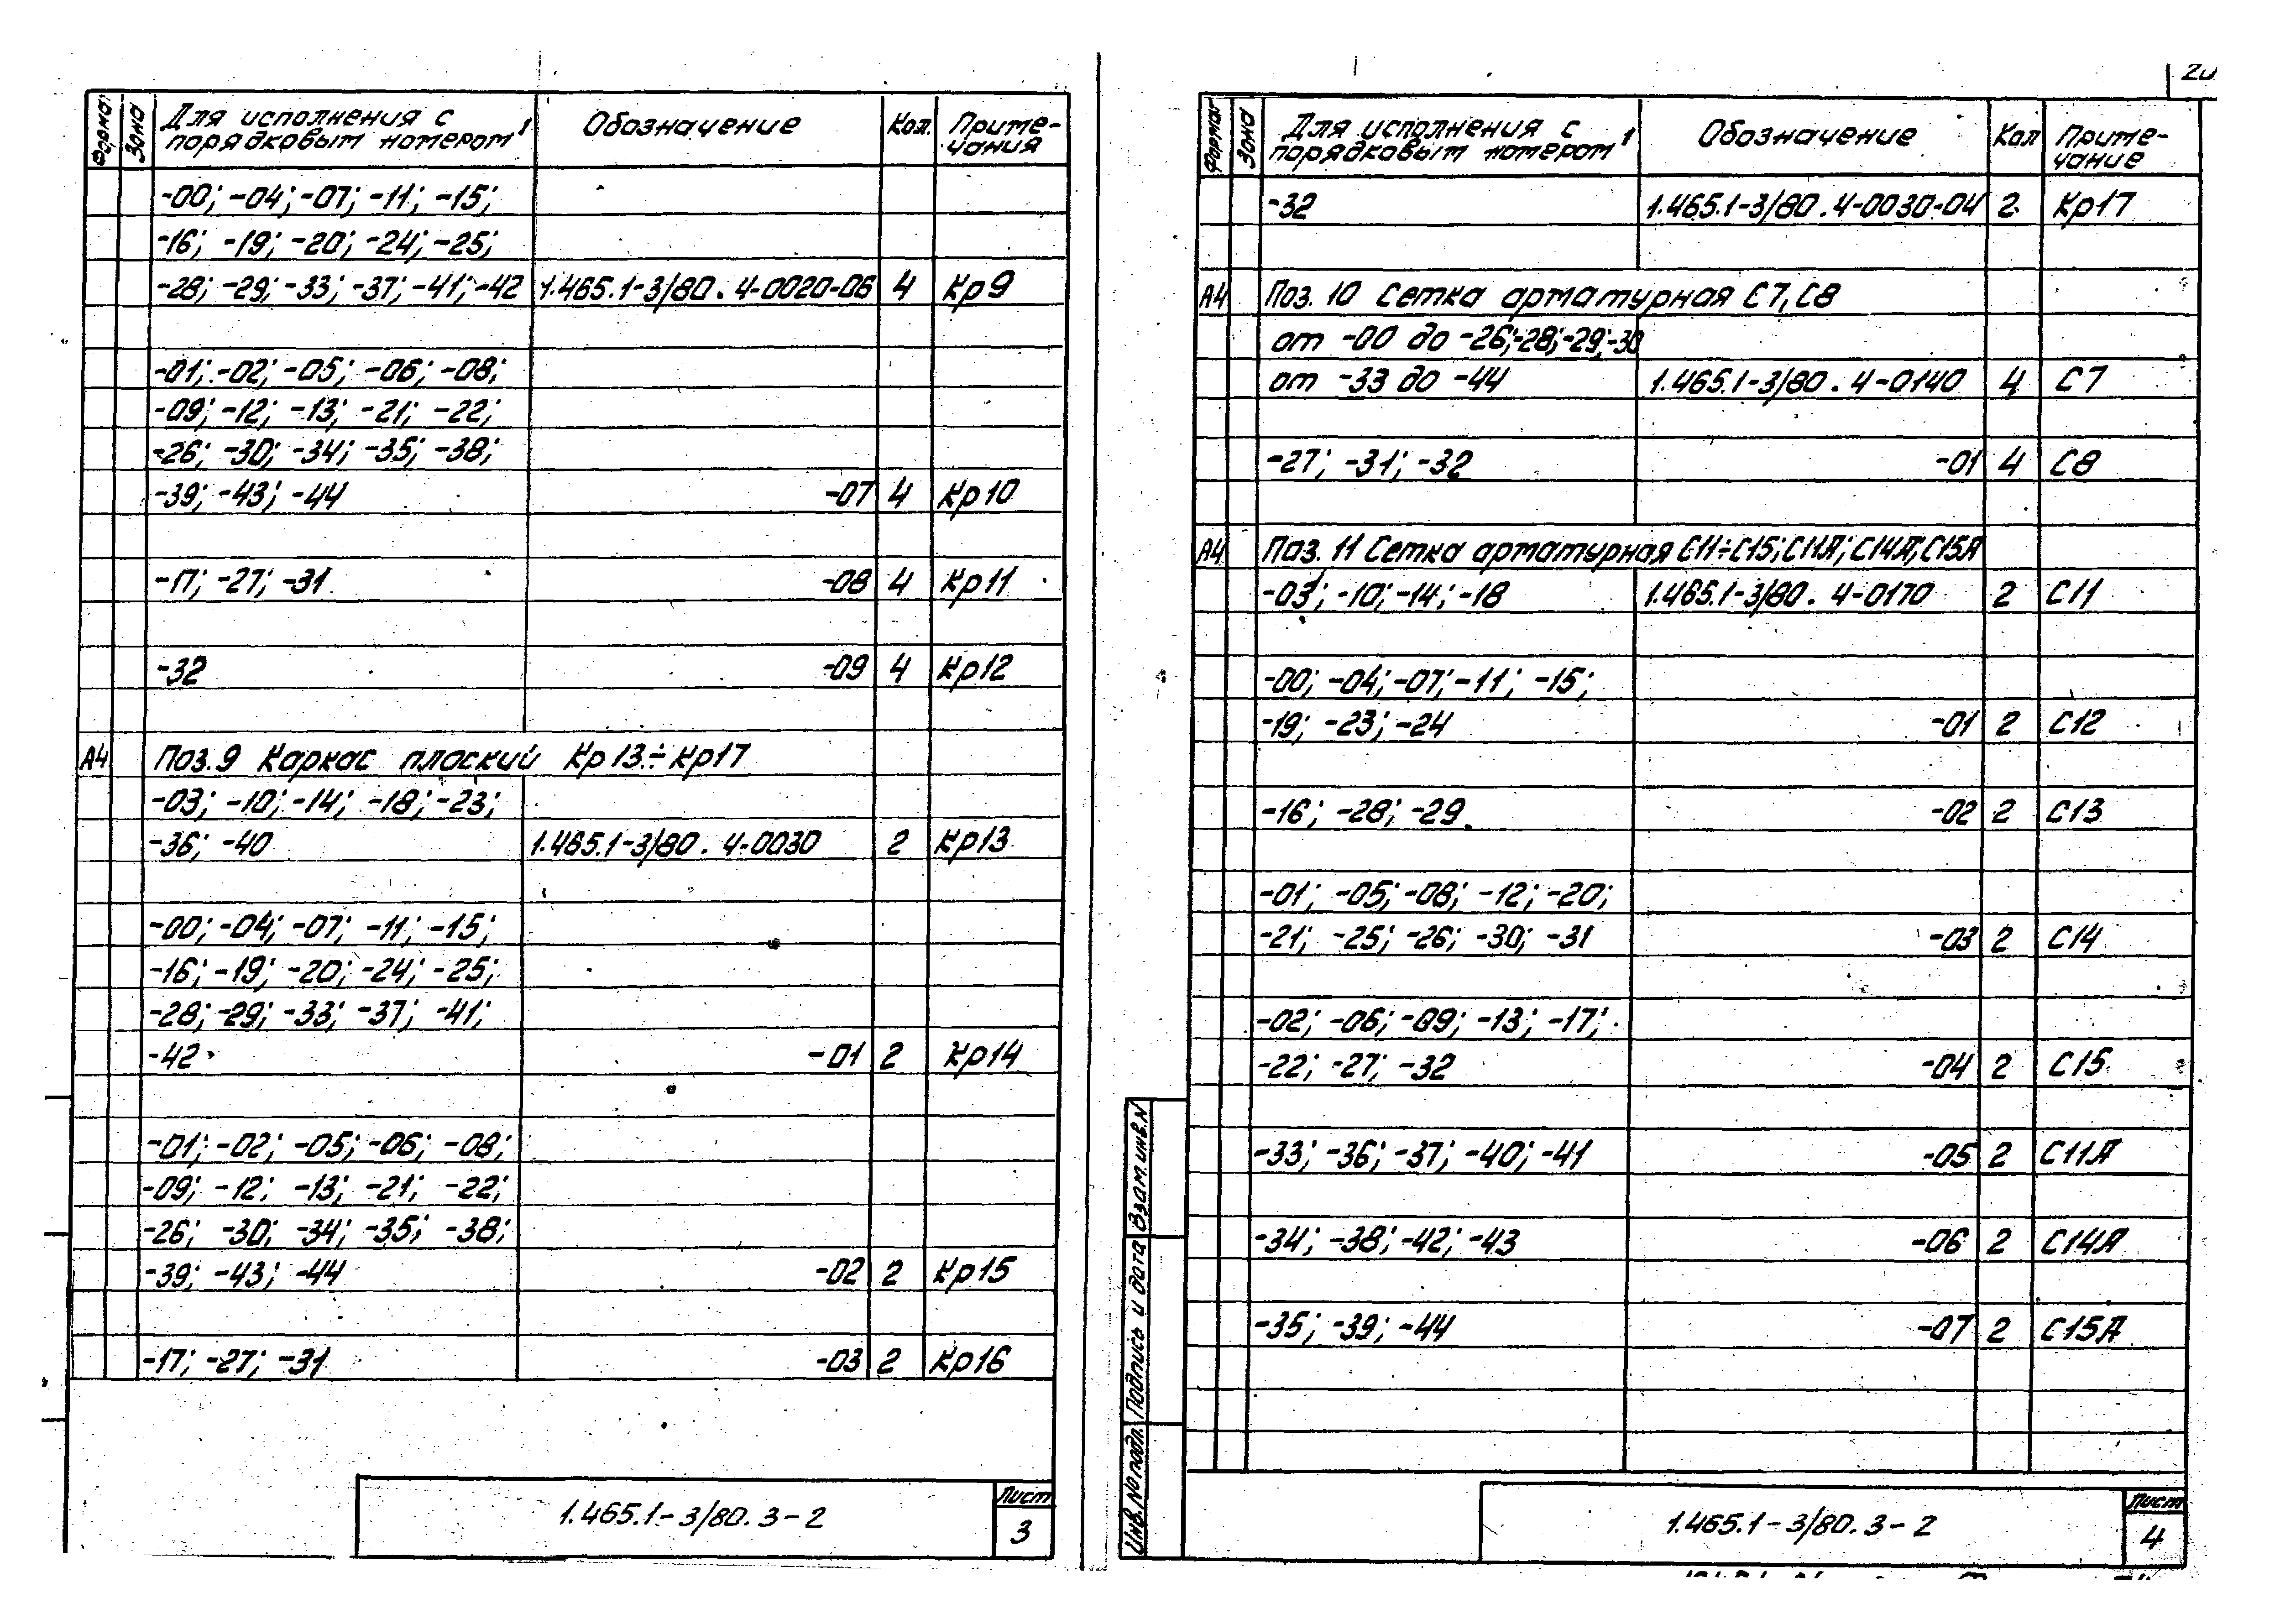 Формат Зона Для исполнения с порядковым номером¹ Обозначение Кол. Примечания
-00; -04; -07; -11; -15;
-16; -19; -20; -24; -25;
-28; -29; -33; -37; -41; -42 1.465.1-3/80.4-0020-06 4 Кр9
-01; -02; -05; -06; -08;
-09; -12; -13; -21; -22;
-26; -30; -34; -35; -38;
-39; -43; -44 -07 4 Кр10
-17; -27; -31 -08 4 Кр11
-32 -09 4 Кр12
А4 Поз.9 Каркас плоский Кр13÷Кр17
-03; -10; -14; -18; -23;
-36; -40 1.465.1-3/80.4-0030 2 Кр13
-00; -04; -07; -11; -15;
-16; -19; -20; -24; -25;
-28; -29; -33; -37; -41;
-42 -01 2 Кр14
-01; -02; -05; -06; -08;
-09; -12; -13; -21; -22;
-26; -30; -34; -35; -38;
-39; -43; -44 -02 2 Кр15
-17; -27; -31 -03 2 Кр16
1.465.1-3/80.3-2
Лист
3
20
Формат Зона Для исполнения с порядковым номером¹ Обозначение Кол Примечание
-32 1.465.1-3/80.4-0030-04 2 Кр17
А4 Поз. 10 Сетка арматурная С7, С8
от -00 до -26; -28; -29; -30
от -33 до -44 1.465.1-3/80.4-0140 4 С7
-27; -31; -32 -01 4 С8
А4 Поз. 11 Сетка арматурная С11÷С15; С11А; С14А; С15А
-03; -10; -14; -18 1.465.1-3/80.4-0170 2 С11
-00; -04; -07; -11; -15;
-19; -23; -24 -01 2 С12
-16; -28; -29 -02 2 С13
-01; -05; -08; -12; -20;
-21; -25; -26; -30; -31 -03 2 С14
-02; -06; -09; -13; -17;
-22; -27; -32 -04 2 С15
-33; -36; -37; -40; -41 -05 2 С11А
-34; -38; -42; -43 -06 2 С14А
-35; -39; -44 -07 2 С15А
Взам. инв. N
Подпись и дата
Инв. № подл.
1.465.1-3/80.3-2
Лист
4